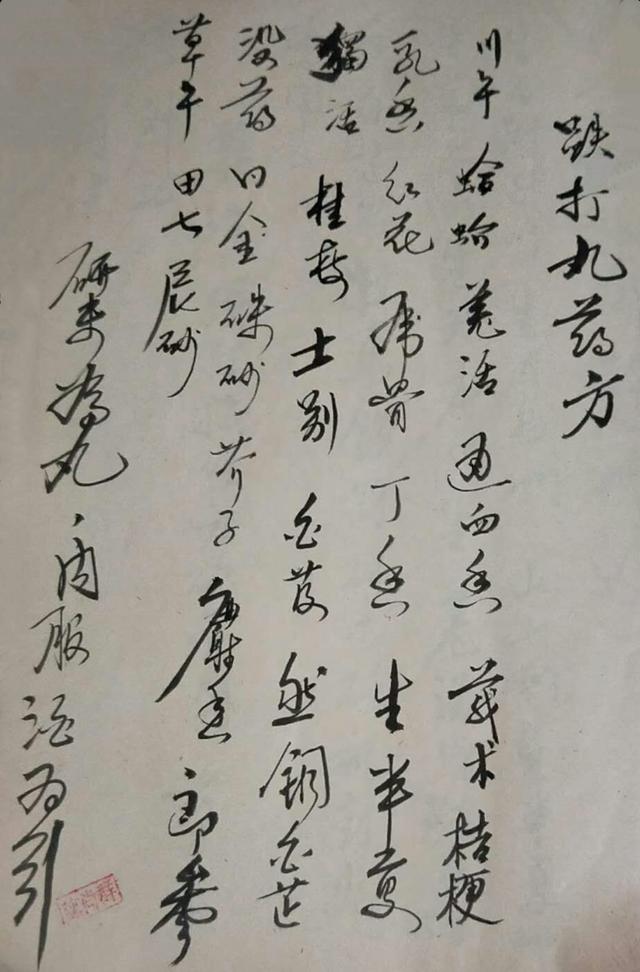 跌打丸药方
川午 蛤蚧 羌活 通血香 莪术 桔梗
乳香 红花 虎骨 丁香 生半夏
獨活 桂枝 土别 白芨 然铜 白芷
没药 田金 硃砂 芥子 麝香
草午 田七 辰砂 郎毒
研末為丸、内服酒为引